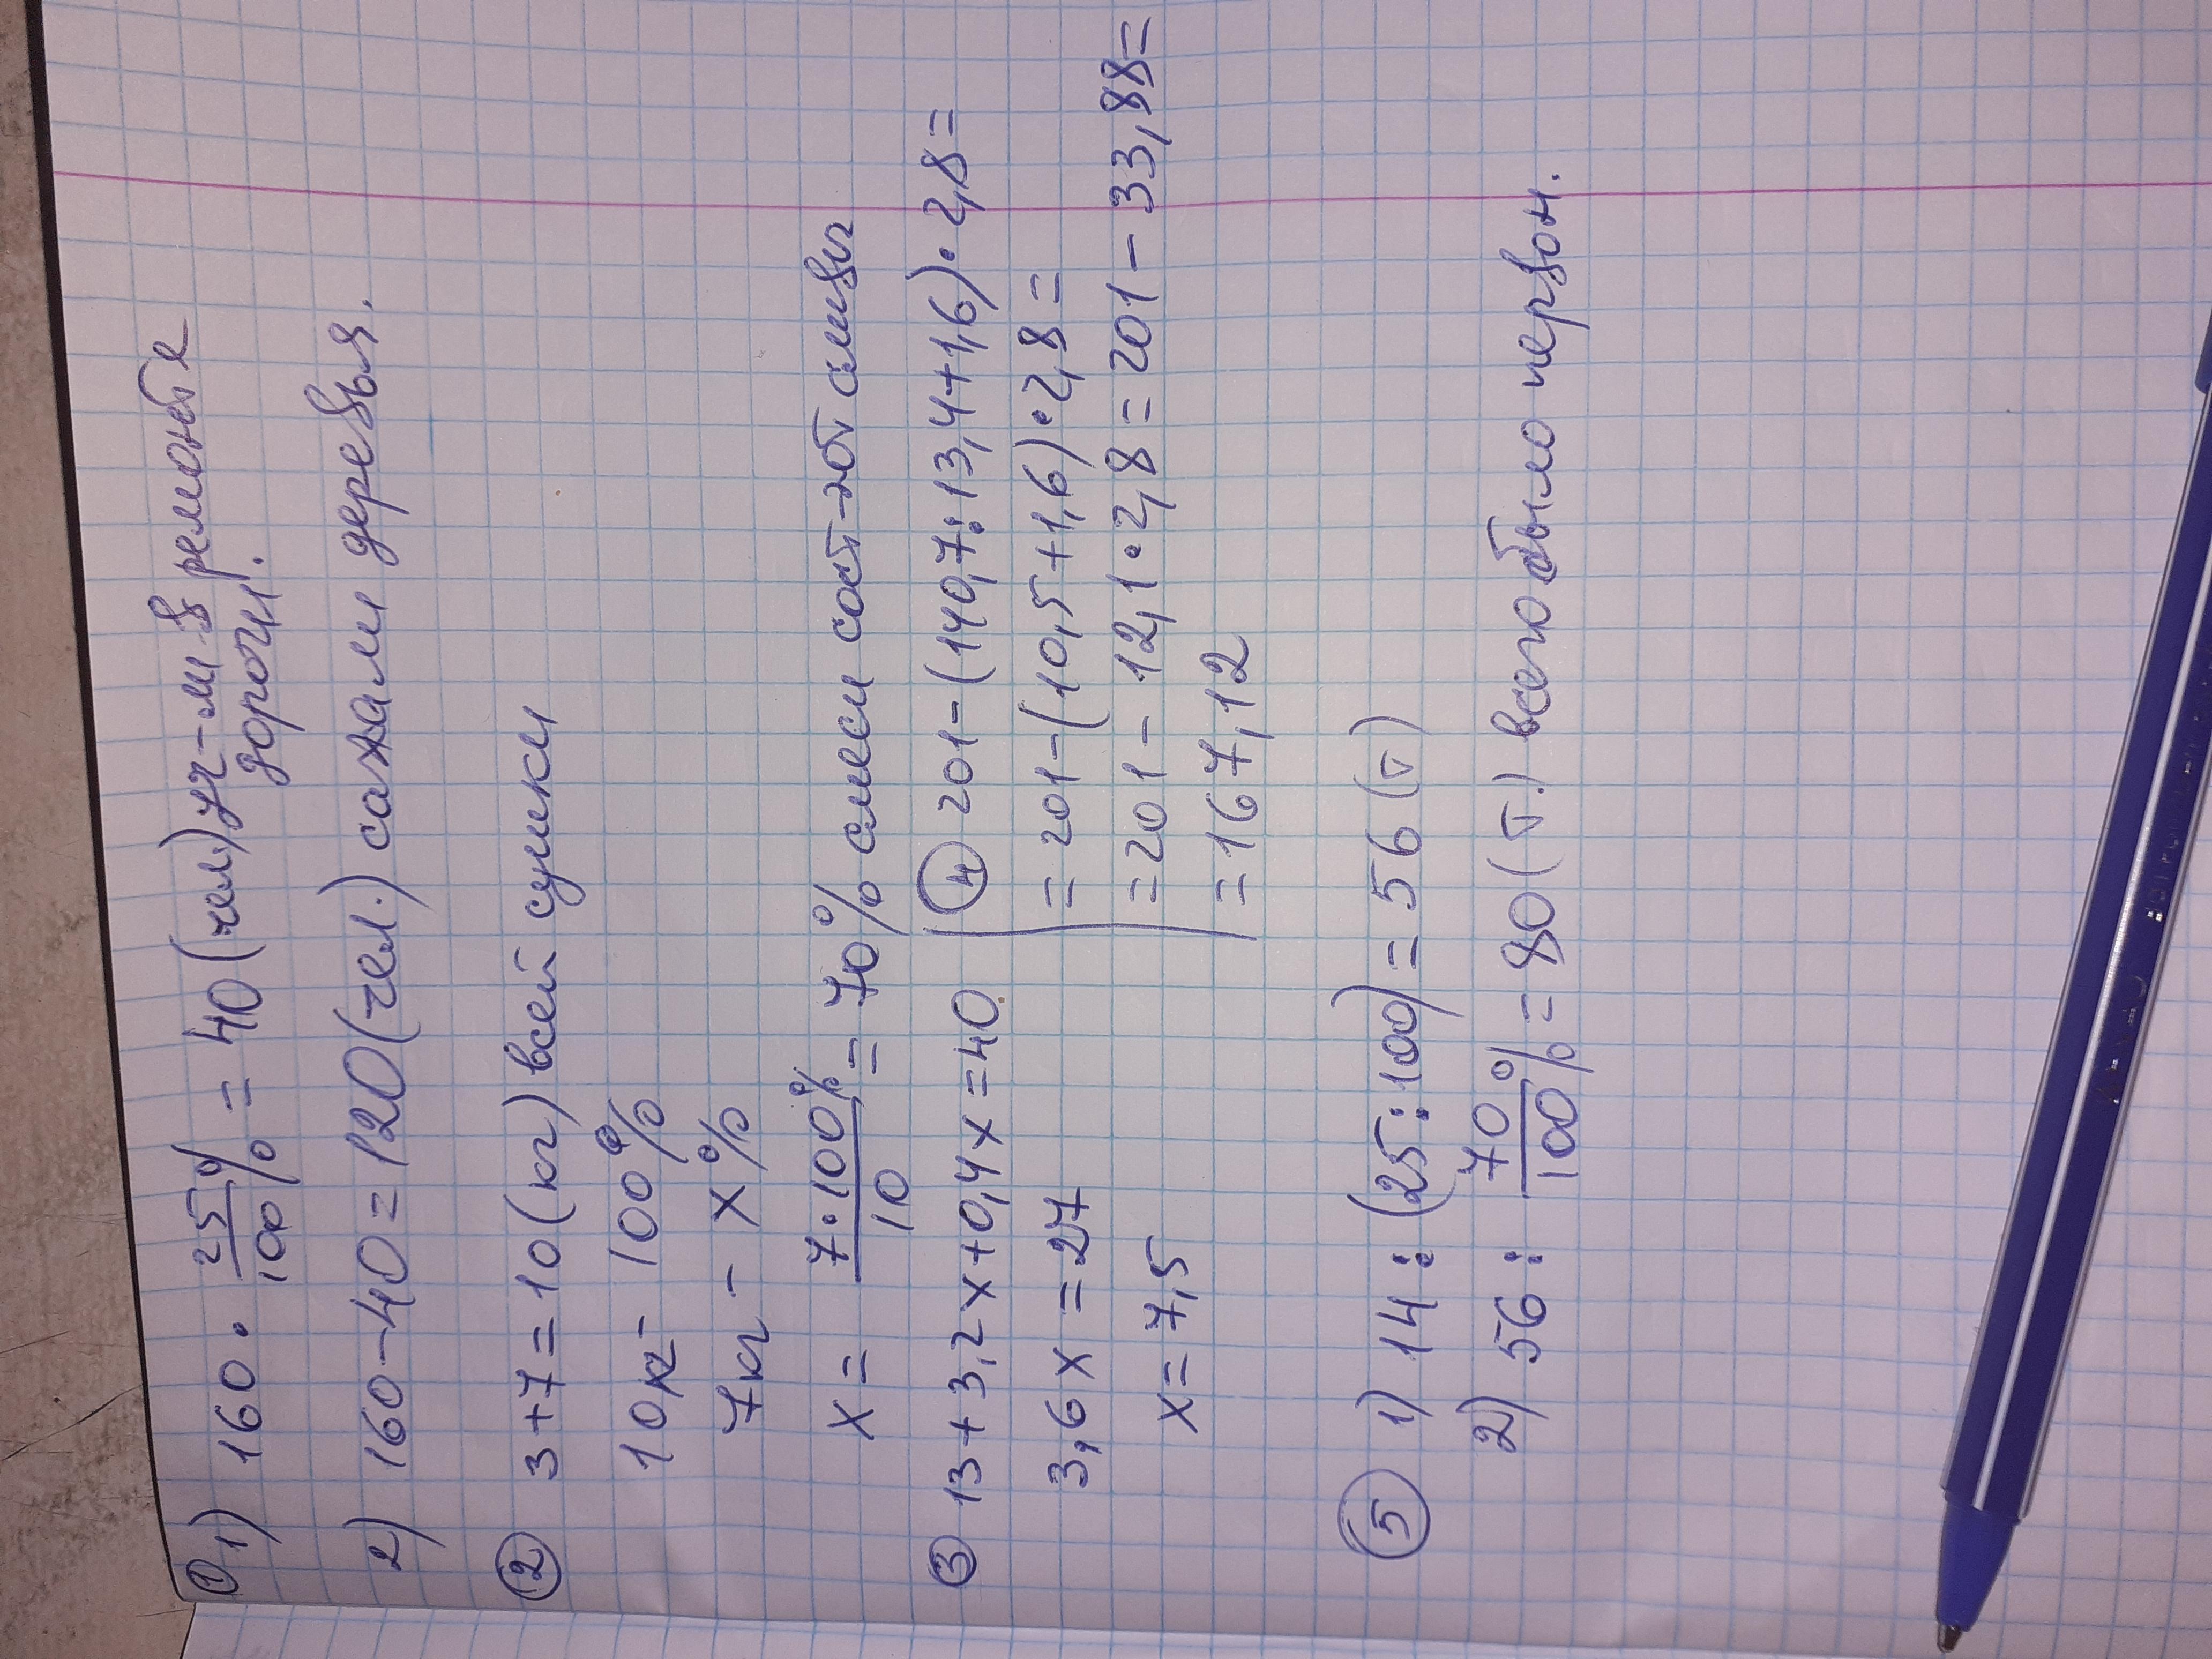 ① 1) 160 · 25/100 % = 40 (чел.) уч-ли в ремонте
дороги.
2) 160 - 40 = 120 (чел.) сажали деревья.
② 3 + 7 = 10 (кг) всей сушки
10 кг - 100 %
7 кг - x %
x = 7 · 100 % / 10 = 70 % смеси сост-ют сливы
③ 13 + 3,2x + 0,4x = 40
3,6x = 27
x = 7,5
④ 201 - (140,7 : 13,4 + 1,6) · 2,8 =
= 201 - (10,5 + 1,6) · 2,8 =
= 201 - 12,1 · 2,8 = 201 - 33,88 =
= 167,12
⑤ 1) 14 : (25 : 100) = 56 (т)
2) 56 : 70/100 % = 80 (т.) всего было первон.